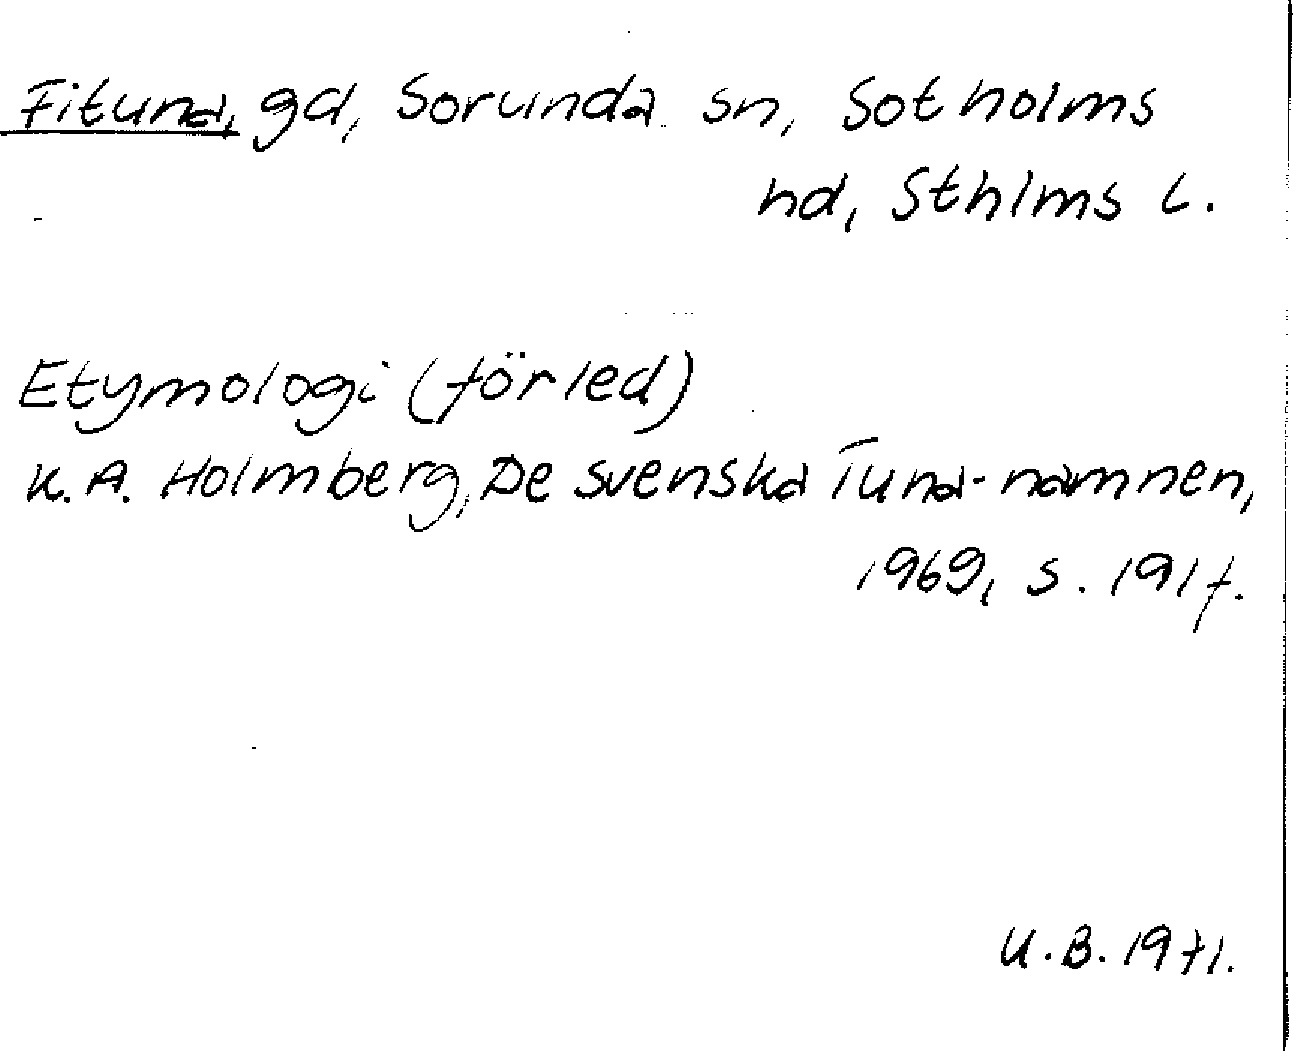 Fituna, gd, Sorunda sn, Sotholms
hd, Sthlms l.
Etymologi (förled)
K. A. Holmberg, De svenska Tuna-namnen,
1969, s. 191f.
U.B. 1971.